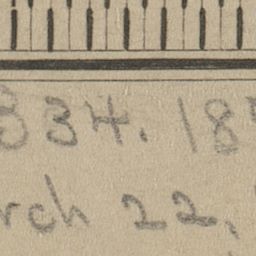 334. 18
rch 22,